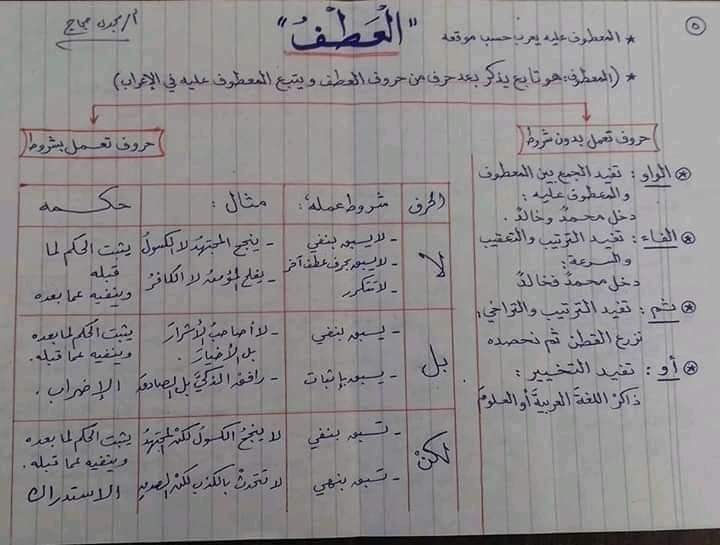 ٥
"العَطْفُ"
أ/ مجدى حجاج
* المعطوف عليه يعرب حسب موقعه
* (المعطوف: هو تابع يذكر بعد حرف من حروف العطف ويتبع المعطوف عليه في الإعراب)
حروف تعمل بدون شروط
* الواو: تفيد الجمع بين المعطوف
والمعطوف عليه:
دخل محمدٌ وخالدٌ.
* الفاء: تفيد الترتيب والتعقيب
والسرعة:
دخل محمدٌ فخالدٌ
* ثم: تفيد الترتيب والتراخي:
نزرع القطن ثم نحصده
* أو: تفيد التخيير:
ذاكرْ اللغةَ العربيةَ أو العلومَ
حروف تعمل بشروط
الحرف
شروط عمله:
مثال:
حكمه
لا
- لا يسبق بنفي
- لا يسبق بحرف عطف آخر
- لا تتكرر
- ينجح المجتهدُ لا الكسولُ
- يفلح المؤمنُ لا الكافرُ
يثبت الحكم لما
قبله
وينفيه عما بعده
بل
- يسبق بنفي
- يسبق بإثبات
- لا أصاحبُ الأشرارَ
بل الأخيارَ.
- رافقْ الذكيَّ بل الصادقَ
يثبت الحكم لما بعده
وينفيه عما قبله.
الإضراب.
لكنْ
- تسبق بنفي
- تسبق بنهي
لا ينجحُ الكسولُ لكنْ المجتهدُ
لا تتحدثْ بالكذبِ لكنْ الصدقِ
يثبت الحكم لما بعده
وينفيه عما قبله.
الاستدراك